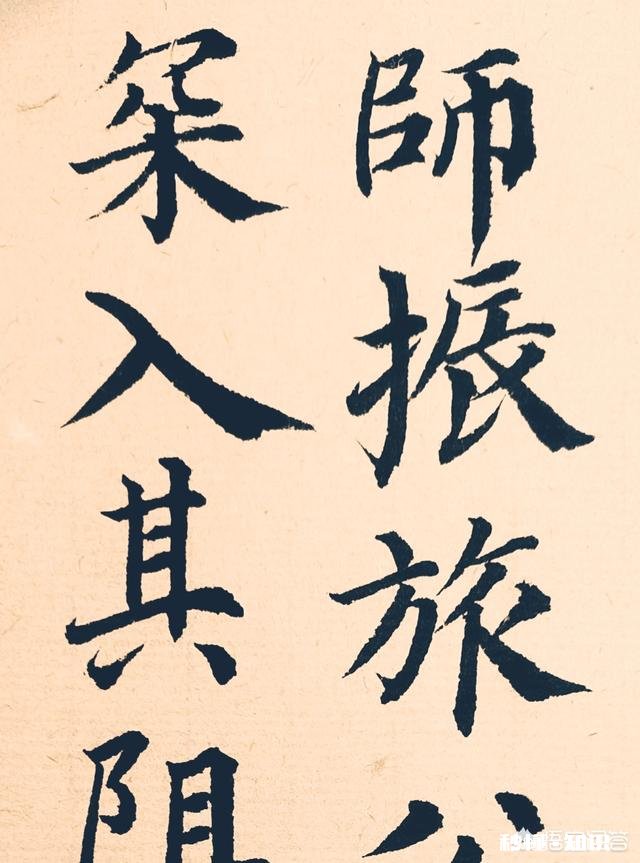 師振旅
罙入其阻